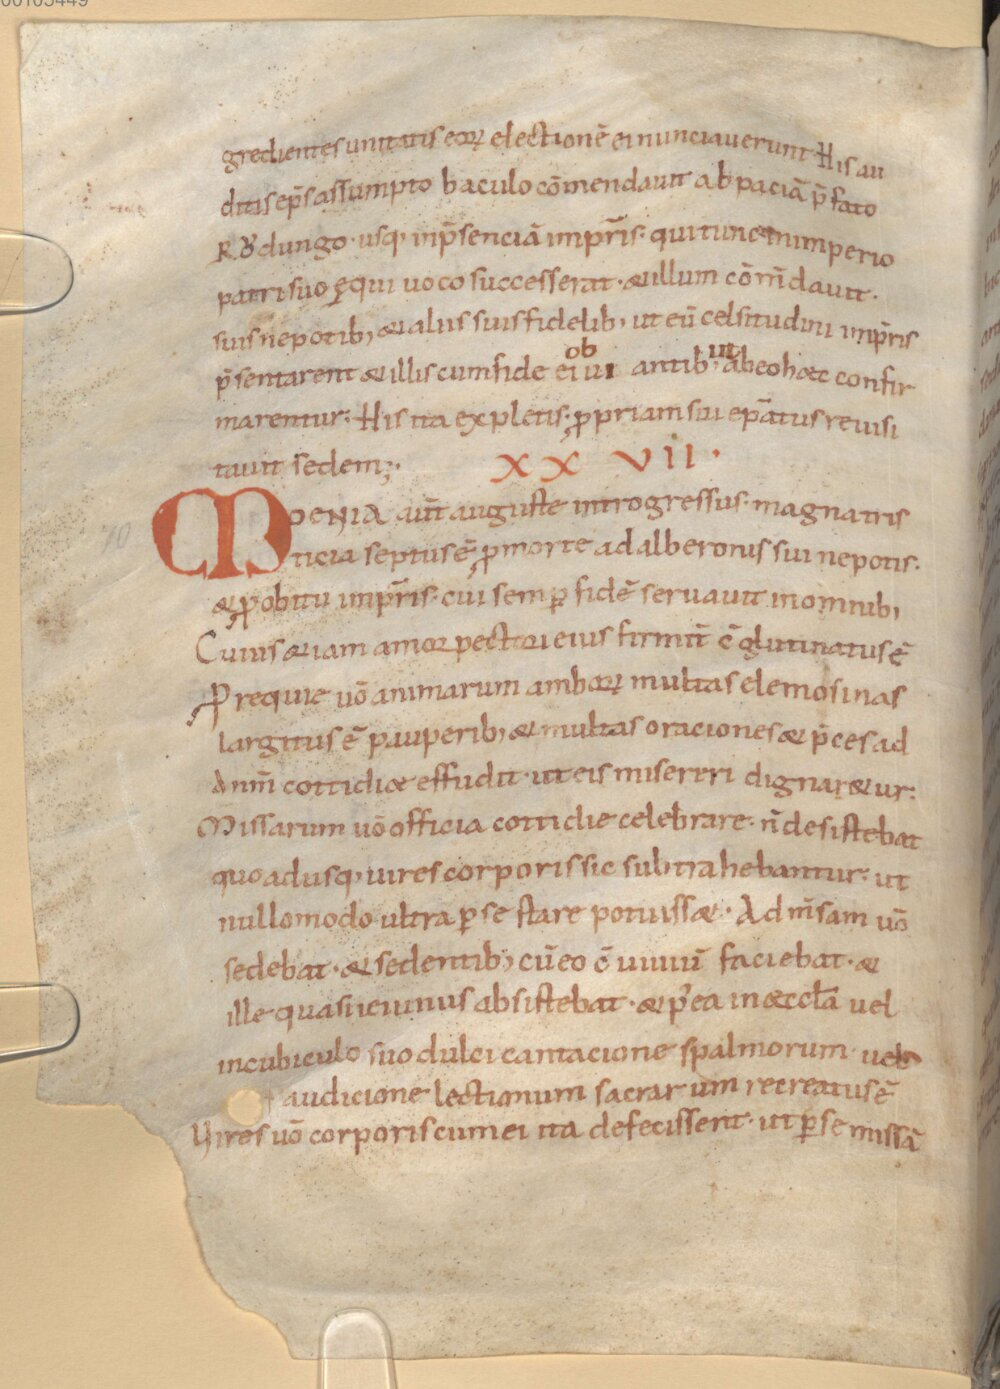 gredientes unitatis eoꝝ electionē ei nunciauerunt. His au
ditis ep̄s assumpto baculo cōmendauit abpaciā p̄fato
Rꝸdungo. usq; in p̄senciā imp̄ris. qui tunc in imperio
patri suo ęqui uoco successerat. & illum cōm̄dauit.
suis nepotib; & aliis suis fidelib; ut eū celsitudini imp̄ris
p̄sentarent & illis cum fide ei ob ui antib; ab eo hæc confir
marentur: His ita expletis. ꝓpriam sui ep̄atus reuisi
tauit sedem;.
XX VII.
MOENIA aut̄ auguste introgressus. magna tris
ticia septus ē ꝓ morte adalberonis sui nepotis.
& ꝓ obitu imp̄ris. cui semꝑ fidē seruauit in omnib;
Cuius & iam amor pectori eius firmit̄ cōglutinatus ē
Ꝓ requie uō animarum amboꝝ multas elemosinas
largitus ē pauperib; & multas oraciones & p̄ces ad
dn̄m cottidiæ effudit. ut eis misereri dignar&ur:
Missarum uō officia cottidie celebrare. n̄ desistebat
quo adusq; uires corporis sic subtrahebantur. ut
nullomodo ultra ꝑ se stare potuiss&. Ad misam uō
sedebat. & sedentib; cū eo cōuiuiū faciebat. &
ille quasi ieiunus absistebat. & p̄ea in æccl̄a uel
in cubiculo suo dulci cantacione spalmorum. uel
audicione lectionum sacrarum recreatus ē
Vires uō corporis cum ei ita defecissent. ut ꝑ se missā